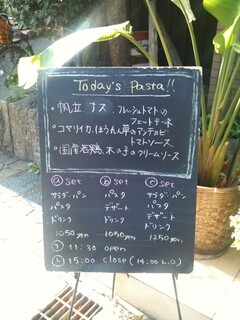 Today's Pasta!!
・帆立 ナス フレッシュトマトの
フェットチーネ
・コマリイカ、ほうれん草のアンチョビ
トマトソース
・国産若鶏、木の子のクリームソース
ⓐ set ⓑ set ⓒ set
サラダ・パン パスタ サラダ・パン
パスタ デザート パスタ
ドリンク ドリンク デザート
ドリンク
1050yen 1050yen 1250yen
11:30 open
Ⓛ 15:00 close (14:00 L.O)